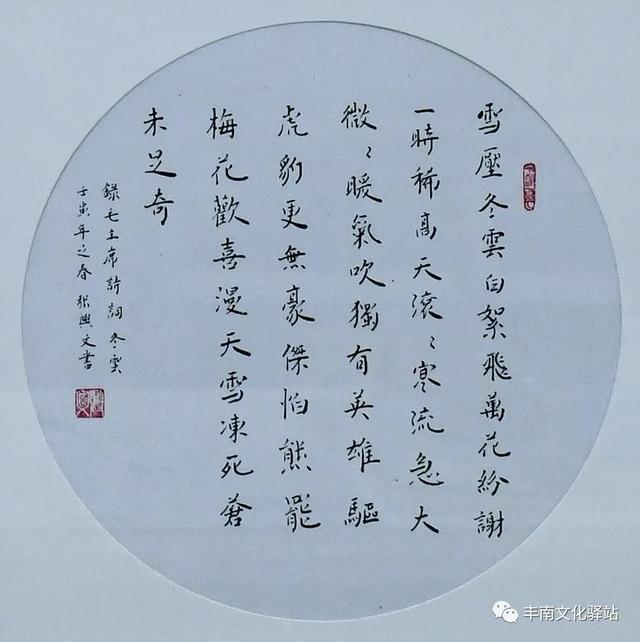 雪壓冬雲白絮飛萬花紛謝
一時稀高天滾〻寒流急大
微〻暖氣吹獨有英雄驅
虎豹更無豪傑怕熊羆
梅花歡喜漫天雪凍死蒼
未足奇
錄毛主席詩詞冬雲
壬寅年之春張興文書
丰南文化驿站